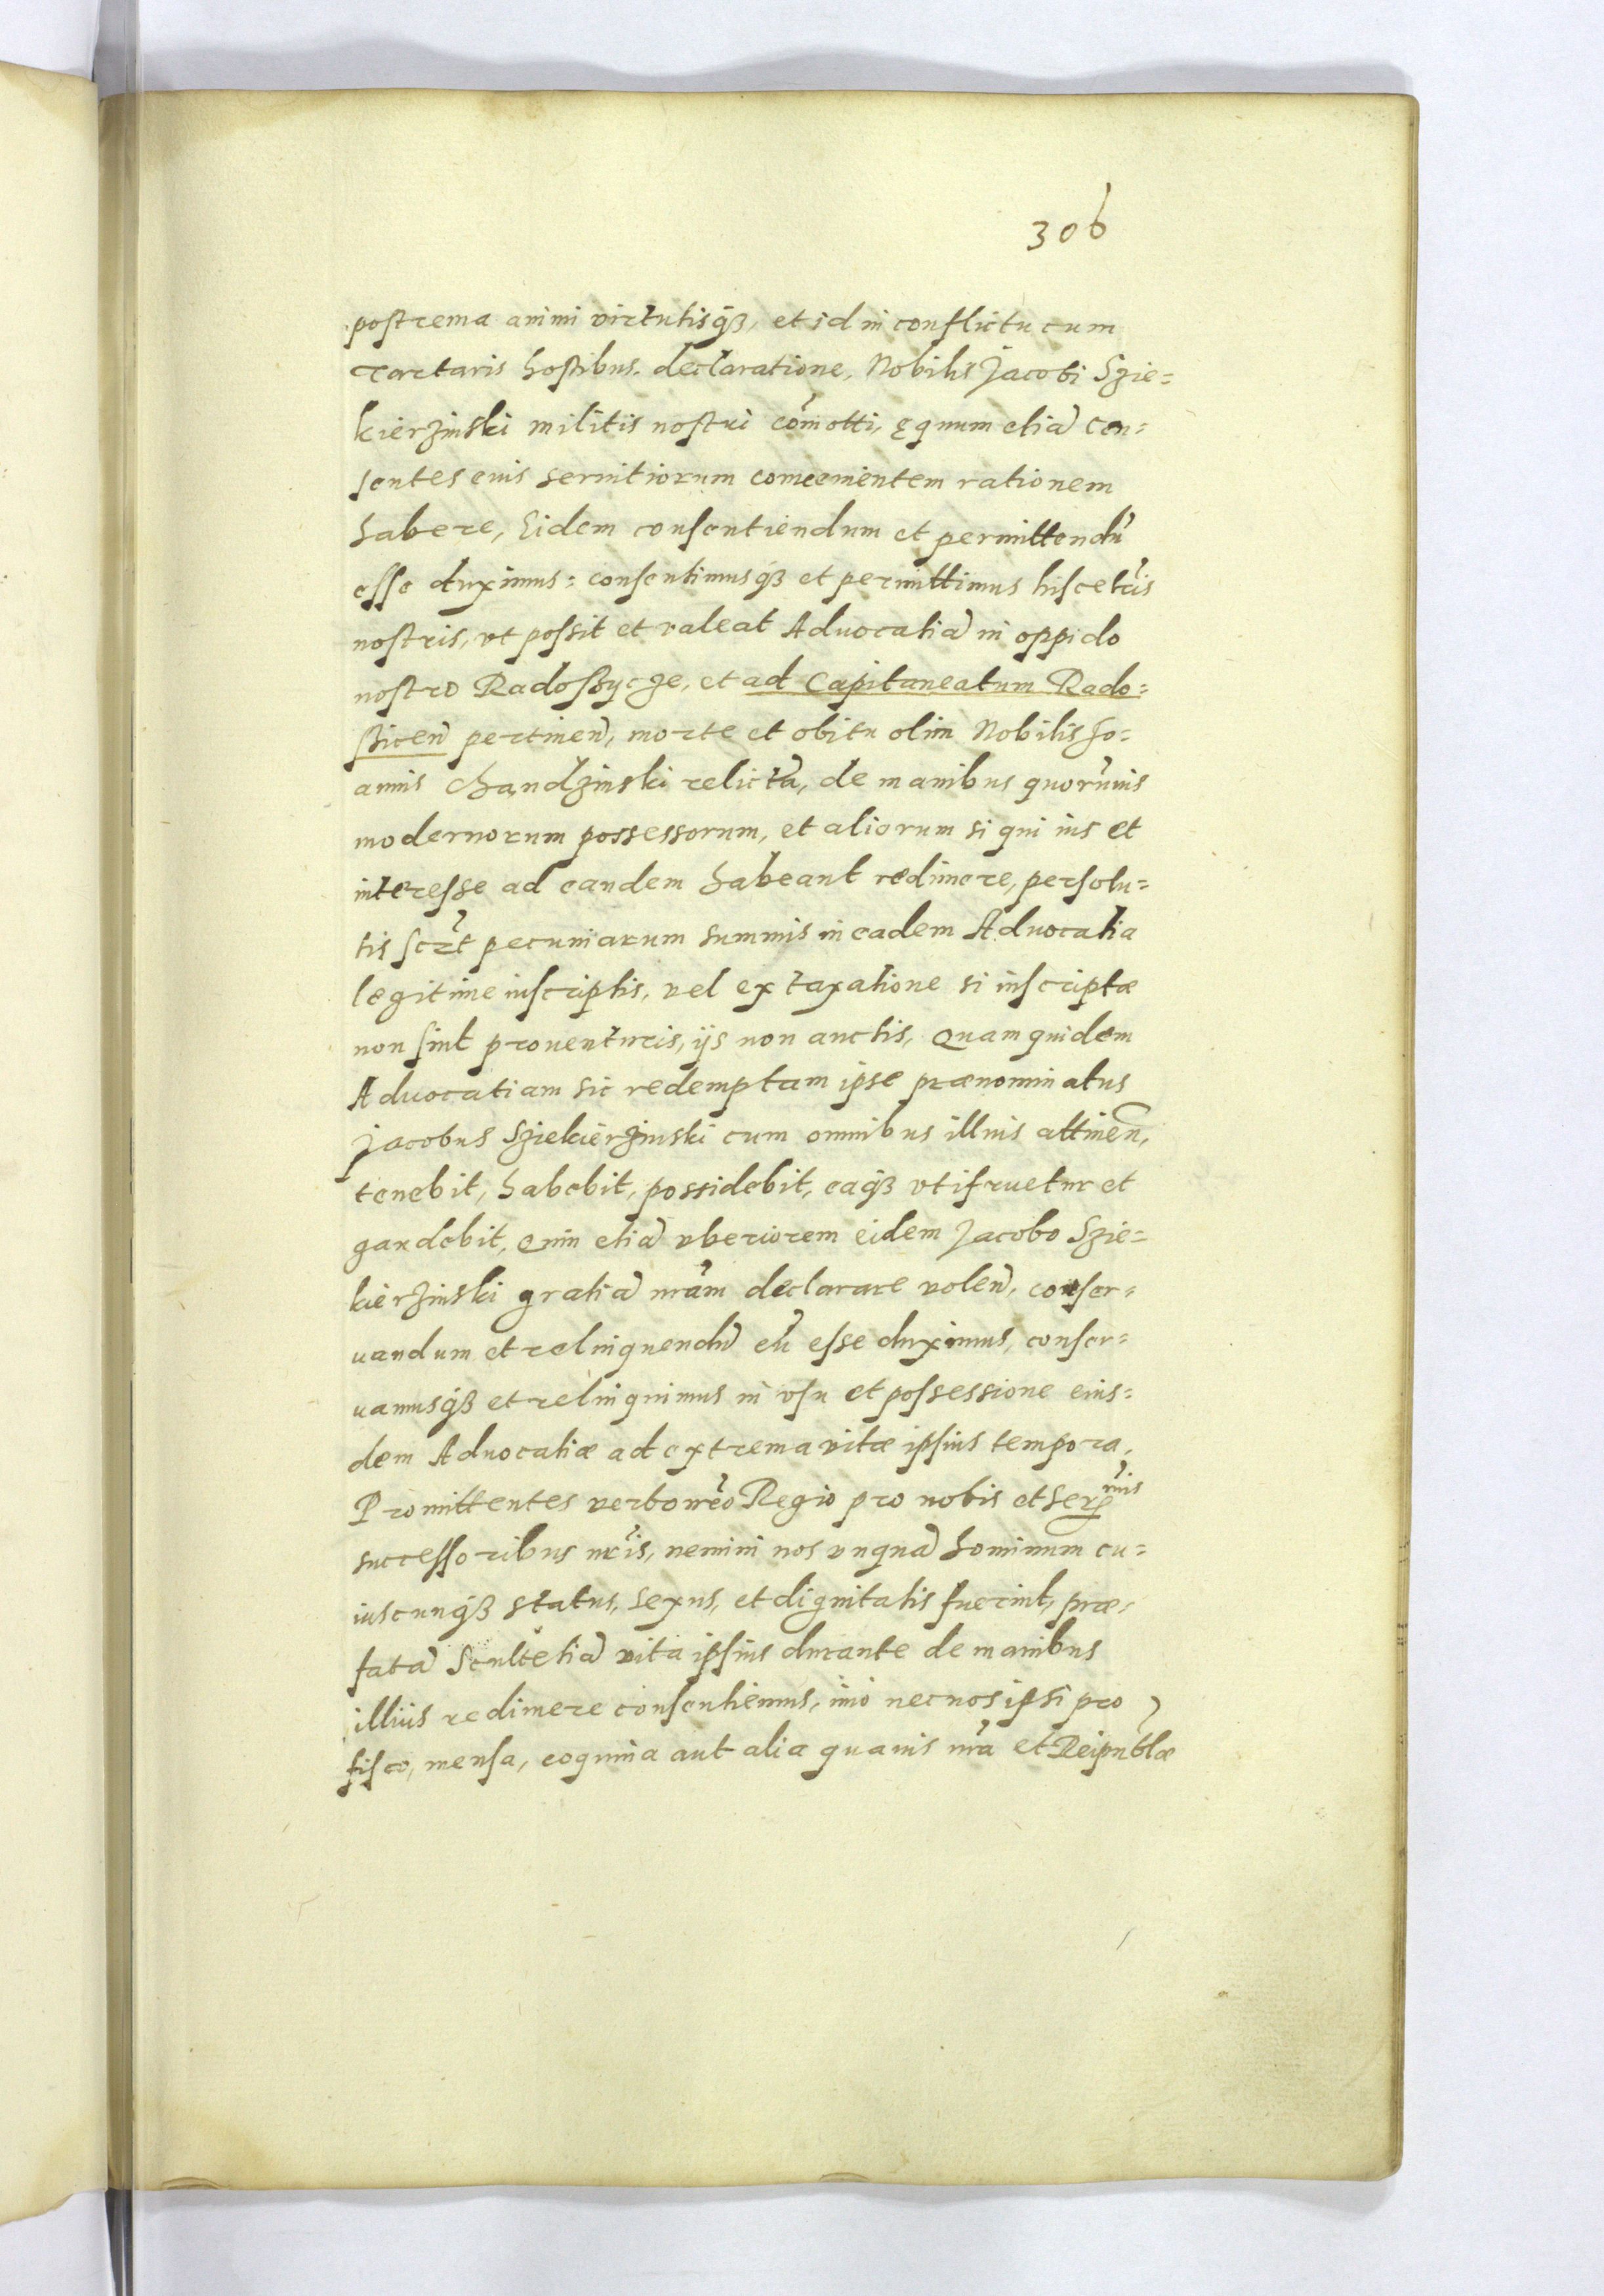 306
postrema animi virtutisq́ꝫ, et id in conflictu cum
Tartaris hostibus. declaratione, Nobilis Jacobi Szie=
kierzinski militis nostri com̃otti, ęquum etiã Cen=
sentes eius seruitiorum conuenientem rationem
habere, Eidem consentiendum et permittendũ
esse duximus: consentimusq́ꝫ et permittimus hisce lr̃is
nostris, vt possit et valeat Aduocatiã in oppido
nostro Radoszycze, et ad Capitaneatum Rado=
szicen̄ pertinen̄, morte et obitu olim Nobilis Jo=
annis Chandzinski relictã, de manibus quorũuis
modernorum possessorum, et aliorum si qui ius et
interesse ad eandem habeant redimere, persolu=
tis scz̃t pecuniarum summis in eadem Aduocatia
legitime inscriptis, vel ex taxatione si inscriptæ
non sint prouenturis, ijs non auctis, Quam quidem
Aduocatiam sic redemptam ipse prænominatus
Jacobus Sziekierzinski cum omnibus illius attinen̄,
tenebit, habebit, possidebit, eaq́ꝫ vtifruetur et
gaudebit, Quin etiã vberiorem eidem Jacobo Szie=
kierzinski gratiã nr̃am declarare volen̄, conser=
uandum et relinquendũ eũ esse duximus, conser=
uamusq́ꝫ et relinquimus in vsu et possessione eius=
dem Aduocatiæ ad extrema vitæ ipsius tempora,
Promittentes verbo nr̃o Regio pro nobis et Ser̃mis
successoribus nr̃is, nemini nos vnquã hominum cu=
iuscunq́ꝫ status, sexus, et dignitatis fuerint, præ=
fatã Scultetiã vita ipsius durante de manibus
illius redimere consentiemus, imò nec nos ipsi pro
fisco, mensa, coquina aut alia quauis nr̃a et Reipublæ